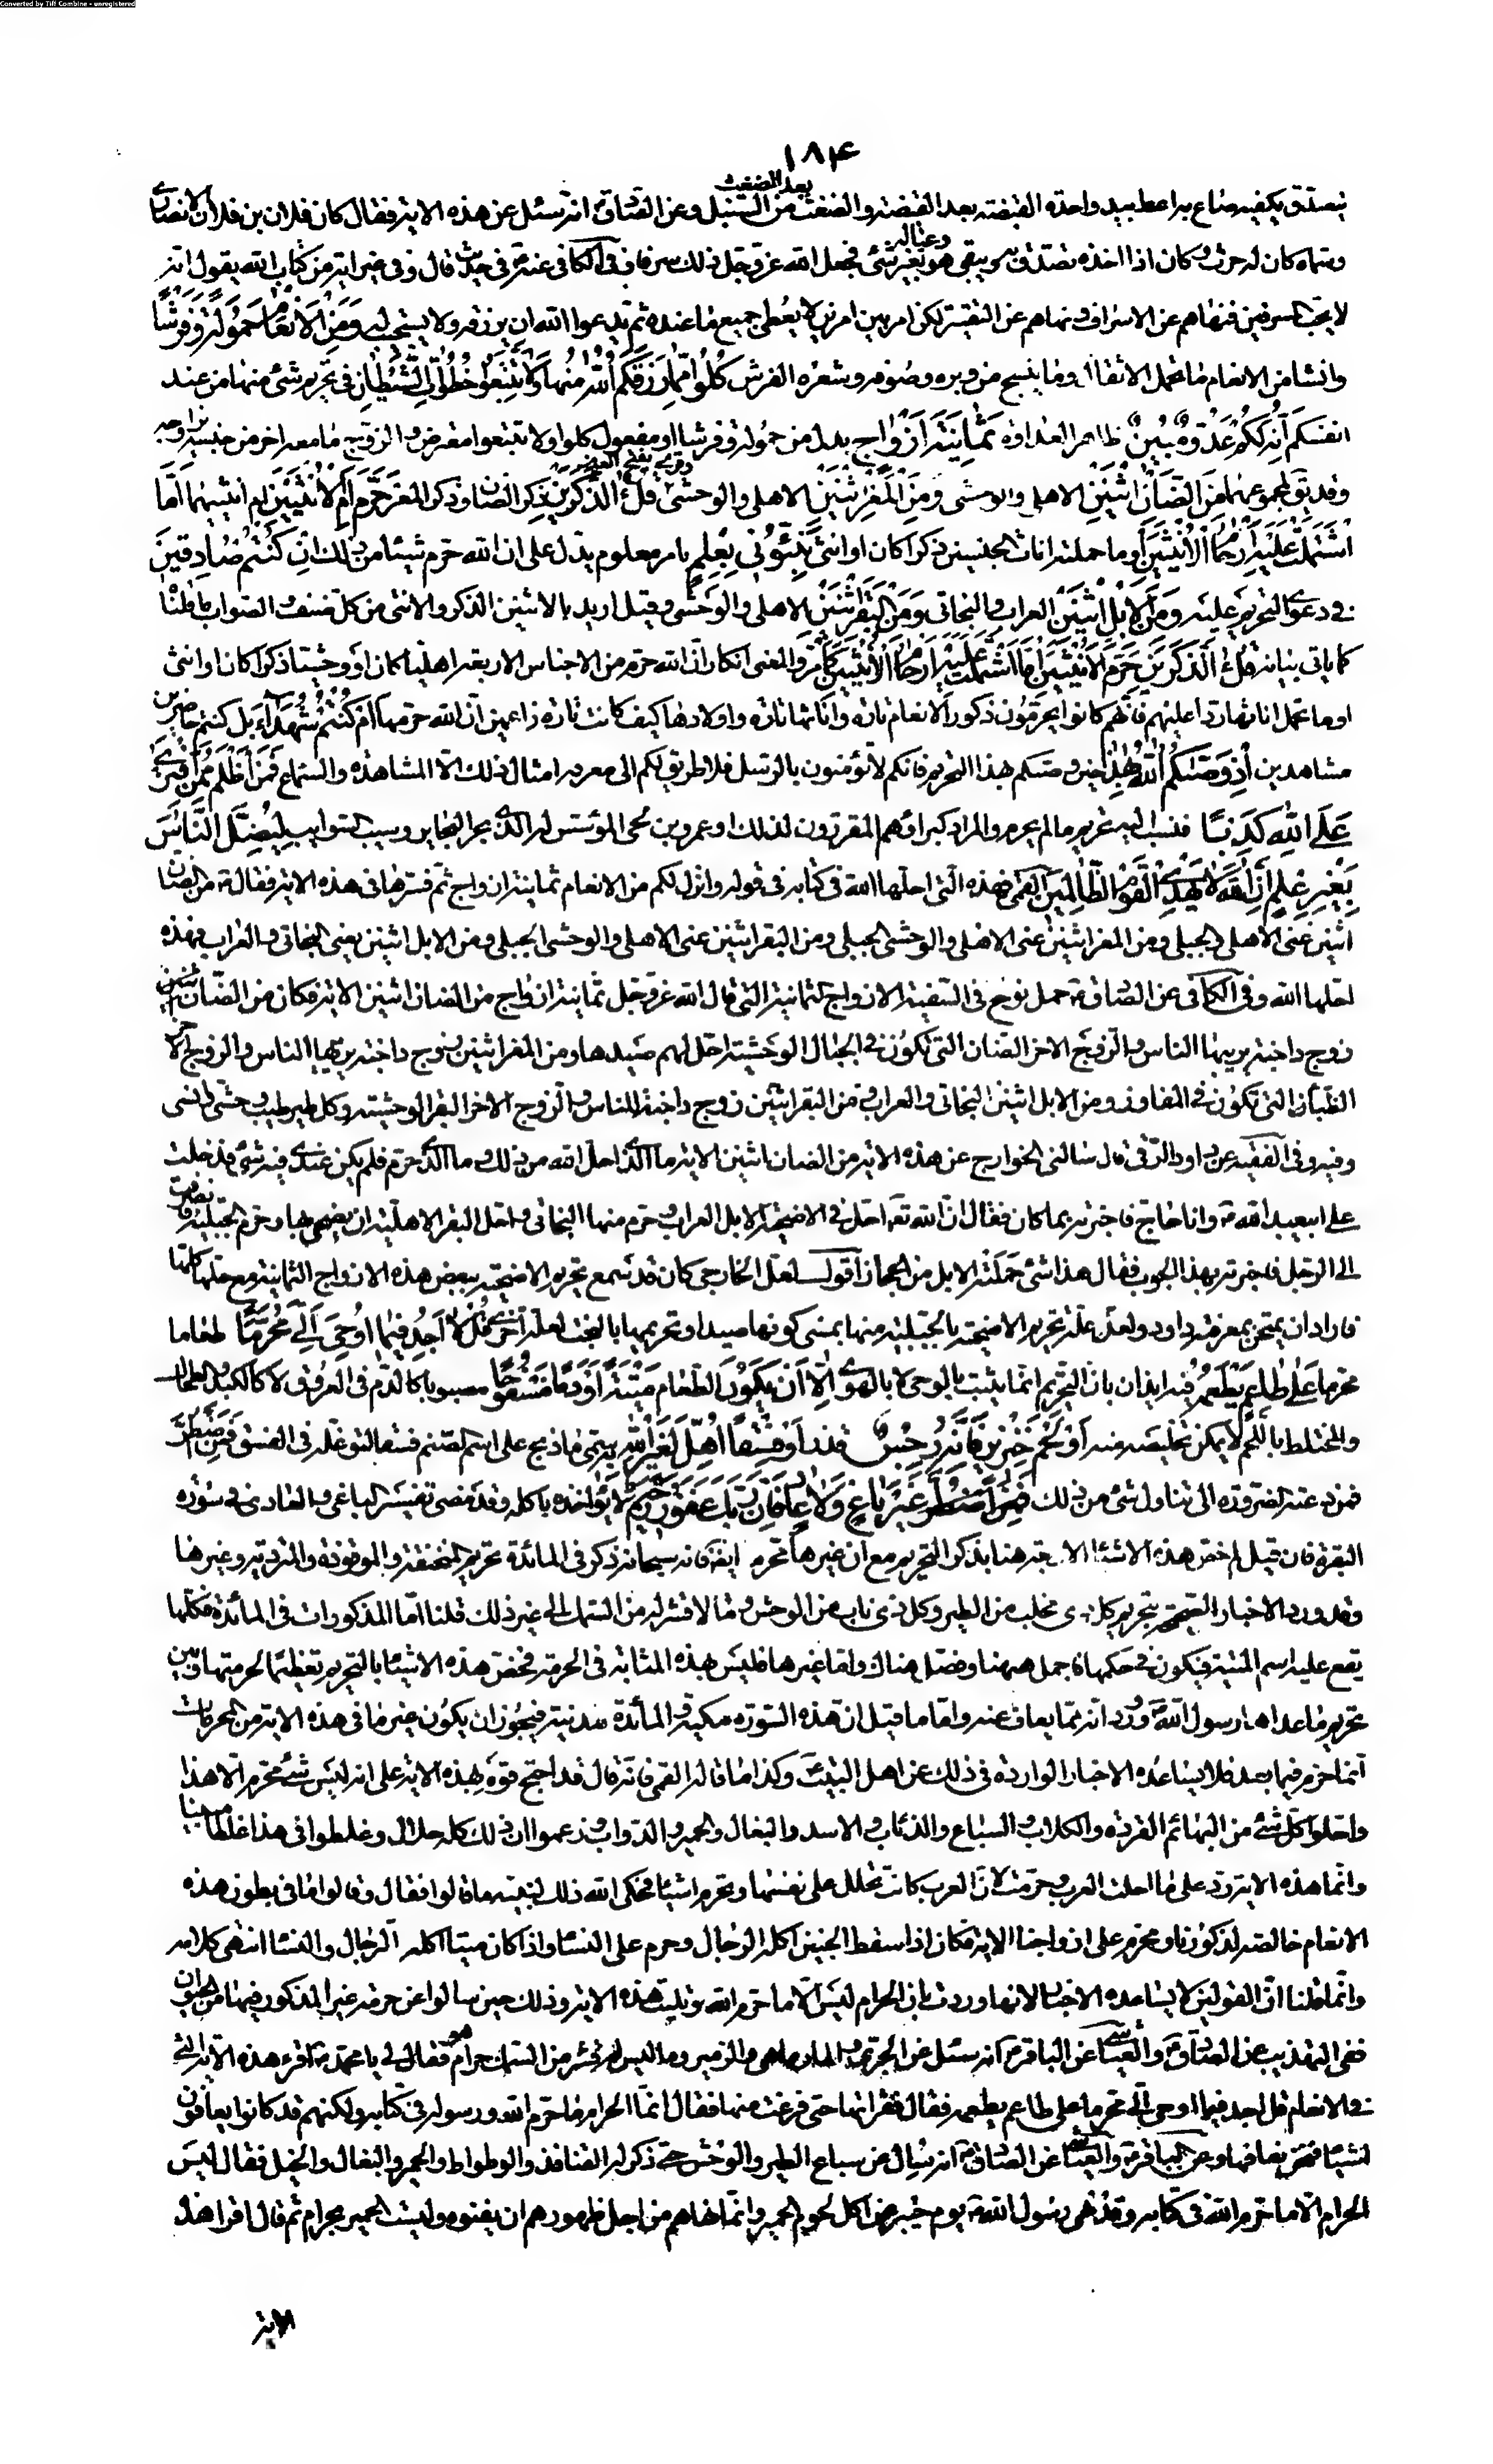 Converted by Tiff Combine - unregistered
۱۸۴
بعد الضغث
يتصدّق بكفيه ضاع به اعط بيد واحدة القبضة بعد القبضة والضغث من السنبل وعن الصّادق انه سئل عن هذه الاية فقال كان فلان بن فلان الانصارى
وعياله
وسمّاه كان له حرث وكان اذا اخذه تصدّق به ويبقى هو بغير شئ فجعل الله عزّوجلّ ذلك سرفا وفى الكافى عنه فى حديث قال وفى غير اية من كتاب الله يقول انه
لا يحبّ المسرفين فنهاهم عن الاسراف ونهاهم عن التقتير لكن امر بين امرين لا يعطى جميع ما عنده ثم يدعوا الله ان يرزقه ولا يستجيب له وَمِنَ الْأَنْعَامِ حَمُولَةً وَفَرْشًا
وانشأ من الانعام ما يحمل الاثقال وما ينسج من وبره وصوفه وشعره الفرش كُلُوا مِمَّا رَزَقَكُمُ اللّٰهُ منها وَلَا تَتَّبِعُوا خُطُوَاتِ الشَّيْطَانِ فى تحريم شئ منها من عند
انفسكم إِنَّهُ لَكُمْ عَدُوٌّ مُبِينٌ ظاهر العداوة ثَمَانِيَةَ أَزْوَاجٍ بدل من حمولة وفرشا او مفعول كلوا ولا تتبعوا معترض والزوج ما معه اخر من جنسه يزاوجه
وقرئ بفتح العين
وقد يق لمجموعهما مِنَ الضَّأْنِ اثْنَيْنِ الاهلى والوحشى وَمِنَ الْمَعْزِ اثْنَيْنِ الاهلى والوحشى قُلْ آلذَّكَرَيْنِ ذكر الضان وذكر المعز حَرَّمَ أَمِ الْأُنْثَيَيْنِ ام انثييهما أَمَّا
اشْتَمَلَتْ عَلَيْهِ أَرْحَامُ الْأُنْثَيَيْنِ او ما حملته اناث الجنسين ذكرا كان او انثى نَبِّئُونِي بِعِلْمٍ بامر معلوم يدلّ على ان الله حرّم شيئا من ذلك إِنْ كُنْتُمْ صَادِقِينَ
فى دعوى التحريم عليه وَمِنَ الْإِبِلِ اثْنَيْنِ العراب والبخاتى وَمِنَ الْبَقَرِ اثْنَيْنِ الاهلى والوحشى وقيل اريد بالاثنين الذكر والانثى من كل صنف والصواب ما قلناه
كما ياتى بيانه قُلْ آلذَّكَرَيْنِ حَرَّمَ أَمِ الْأُنْثَيَيْنِ أَمَّا اشْتَمَلَتْ عَلَيْهِ أَرْحَامُ الْأُنْثَيَيْنِ كما مرّ والمعنى انكار انّ الله حرّم من الاجناس الاربعة اهليا كان او وحشيا ذكرا كان او انثى
او ما تحمل اناثها ردّا عليهم فانّهم كانوا يحرّمون ذكور الانعام تارة واناثها تارة واولادها كيف كانت تارة زاعمين انّ الله حرّمها أَمْ كُنْتُمْ شُهَدَاءَ بل كنتم حاضرين
مشاهدين إِذْ وَصَّاكُمُ اللّٰهُ بِهٰذَا حين وصّيكم بهذا التحريم فانكم لا تؤمنون بالرسل فلا طريق لكم الى معرفة امثال ذلك الا المشاهدة والسماع فَمَنْ أَظْلَمُ مِمَّنِ افْتَرَى
عَلَى اللّٰهِ كَذِبًا فنسب اليه تحريم ما لم يحرم والمراد كبراؤهم المقرّرون لذلك او عمرو بن لحى المؤسّس له الذى بحر البحاير وسيب السوايب لِيُضِلَّ النَّاسَ
بِغَيْرِ عِلْمٍ إِنَّ اللّٰهَ لَا يَهْدِي الْقَوْمَ الظَّالِمِينَ القمى فهذه الّتى احلّها الله فى كتابه فى قوله وانزل لكم من الانعام ثمانية ازواج ثم فسّرها فى هذه الاية فقال من الضان
اثنين عنى الاهلى والجبلى ومن المعز اثنين عنى الاهلى والوحشى الجبلى ومن البقر اثنين عنى الاهلى والوحشى الجبلى ومن الابل اثنين يعنى البخاتى والعراب فهذه
احلّها الله وفى الكافى عن الصّادق حمل نوح فى السفينة الازواج الثمانية التى قال الله عزّوجلّ ثمانية ازواج من الضان اثنين الاية فكان من الضّان اثنين
زوج داجنة يربيها الناس والزوج الاخر الضان التى تكون فى الجبال الوحشية احلّ لهم صيدها ومن المعز اثنين زوج داجنة يربيها الناس والزوج الاخر
الظباء التى تكون فى المفاوز ومن الابل اثنين البخاتى والعراب ومن البقر اثنين زوج داجنة للناس والزوج الاخر البقر الوحشية وكل طير طيب وحشى وانسى
وفيه وفى الفقيه عن داود الرّقى قال سالنى الخوارج عن هذه الاية من الضان اثنين الاية ما الذى احلّ الله من ذلك وما الذى حرّم فلم يكن عندى فيه شئ فدخلت
على ابيعبد الله وانا حاج فاخبرته بما كان فقال انّ الله تعَ احلّ فى الاضحية الابل العراب وحرّم منها البخاتى واحلّ البقر الاهلية ان يضحى بها وحرّم الجبلية فانصرفت
الى الرجل فاخبرته بهذا الجواب فقال هذا شئ حملته الابل من الحجاز اقول لعلّ الخارجى كان قد سمع تحريم الاضحية ببعض هذه الازواج الثمانية مع حلّها كلّها
فاراد ان يمتحن بمعرفته داود ولعلّ علّة تحريم الاضحية بالجبلية منها بمنى كونها صيدا وتحريمها بالبخت لعلة اخرى قُلْ لَا أَجِدُ فِيمَا أُوحِيَ إِلَيَّ مُحَرَّمًا طعاما
محرما عَلَىٰ طَاعِمٍ يَطْعَمُهُ فيه ايذان بانّ التحريم انّما يثبت بالوحى لا بالهوى إِلَّا أَنْ يَكُونَ الطعام مَيْتَةً أَوْ دَمًا مَسْفُوحًا مصبوبا كالدّم فى العروق لا كالكبد والطحال
والمختلط باللحم لا يمكن تخليصه منه أَوْ لَحْمَ خِنْزِيرٍ فَإِنَّهُ رِجْسٌ قذر أَوْ فِسْقًا أُهِلَّ لِغَيْرِ اللّٰهِ بِهِ سمّى ما ذبح على اسم الصنم فسقا لتوغله فى الفسق فَمَنِ اضْطُرَّ
فمن دعته الضرورة الى تناول شئ من ذلك غَيْرَ بَاغٍ وَلَا عَادٍ فَإِنَّ رَبَّكَ غَفُورٌ رَحِيمٌ لا يؤاخذه باكله وقد مضى تفسير الباغى والعادى فى سورة
البقرة فان قيل لم خصّ هذه الاشياء الاربعة هنا بذكر التحريم مع ان غيرها محرّم ايضا فانه سبحانه ذكر فى المائدة تحريم المنخنقة والموقوذة والمتردية وغيرها
وقد ورد الاخبار الصحيحة بتحريم كل ذى مخلب من الطير وكل ذى ناب من الوحش وما لا قشر له من السمك الى غير ذلك قلنا امّا المذكورات فى المائدة فكلّها
يقع عليه اسم الميتة فيكون فى حكمها فاجمل ههنا وفصّل هناك وامّا غيرها فليس بهذه المثابة فى الحرمة فخصّ هذه الاشياء بالتحريم تعظيما لحرمتها وبيّن
تحريم ما عداها رسول الله ورد انه ممّا يعاف عنه وامّا ما قيل ان هذه السورة مكية والمائدة مدنية فيجوز ان يكون غير ما فى هذه الاية من المحرمات
انما حرّم فيما بعد فلا يساعده الاخبار الواردة فى ذلك عن اهل البيت وكذا ما قاله القمى فانّه قال قد احتج قوم بهذه الاية على انه ليس شئ محرّم الا هذا
واحلّوا كلّ شئ من البهائم القردة والكلاب والسباع والذئاب والاسد والبغال والحمير والدواب وزعموا ان ذلك كله حلال وغلطوا فى هذا غلطا مبينا
وانّما هذه الاية ردّ على ما احلت العرب وحرّمت لانّ العرب كانت تحلّل على نفسها وتحرّم اشياء فحكى الله ذلك لنبيّه ما قالوا فقال وقالوا ما فى بطون هذه
الانعام خالصة لذكورنا ومحرّم على ازواجنا الاية فكان اذا سقط الجنين اكله الرجال وحرم على النساء واذا كان ميتا اكله الرجال والنساء انتهى كلامه
وانّما قلنا انّ القولين لا يساعده الاخبار لانها وردت بان الحرام ليس الّا ما حرّم الله وتليت هذه الاية وذلك حين سالوا عن حرمة غير المذكور فيها من الحيوان
ففى التهذيب عن الصّادق والعيّاشى عن الباقر انه سئل عن الجرّى والمارماهى والزمير وما ليس له قشر من السمك حرام هو فقال لى يا محمّد اقرء هذه الاية التى
فى الانعام قل لا اجد فيما اوحى الىّ محرّما على طاعم يطعمه فقال فقراتها حتى فرغت منها فقال انّما الحرام ما حرّم الله ورسوله فى كتابه ولكنهم قد كانوا يعافون
اشياء فنحن نعافها وعن الباقر والعيّاشى عن الصّادق انه سئل عن سباع الطير والوحش حتّى ذكر له القنافذ والوطواط والحمير والبغال والخيل فقال ليس
الحرام الّا ما حرّم الله فى كتابه وقد نهى رسول الله يوم خيبر عن اكل لحوم الحمير وانّما نهاهم من اجل ظهورهم ان يفنوه وليست الحمير بحرام ثم قال اقرا هذه
الاية